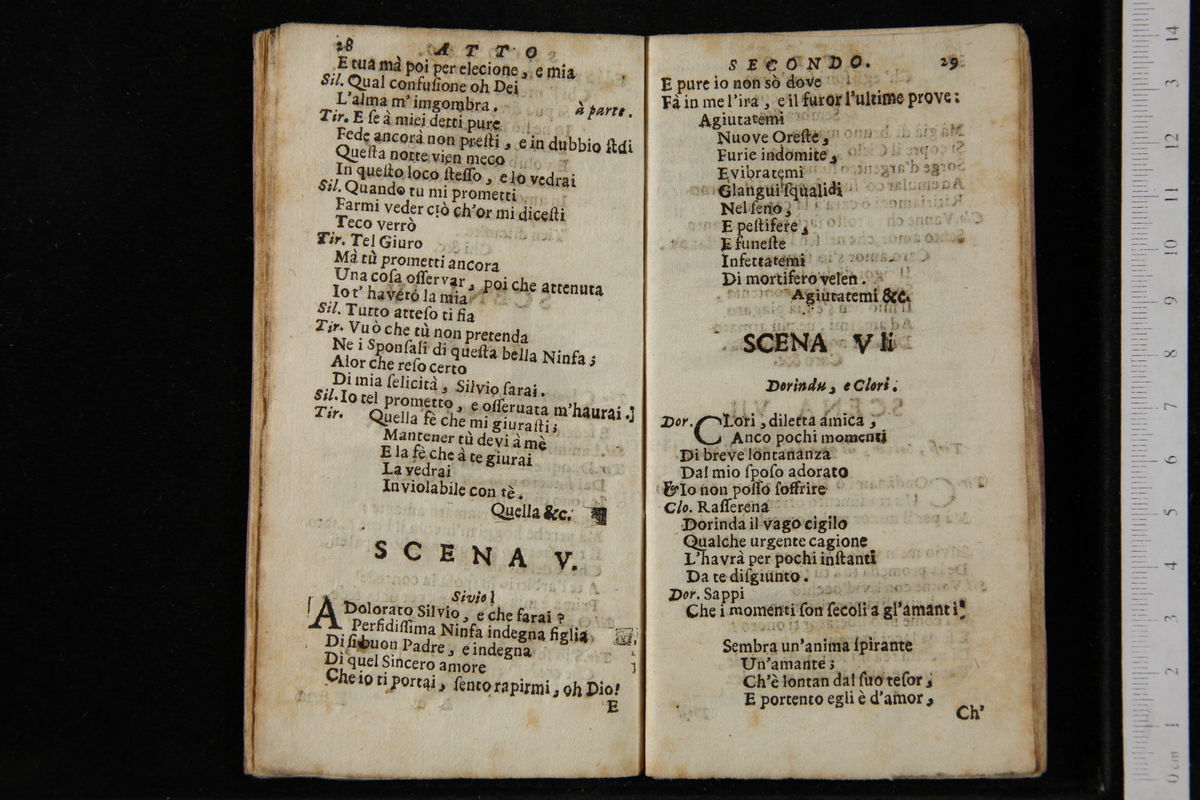 28 ATTO
E tua mà poi per elecione, e mia
Sil. Qual confuſione oh Dei
L'alma m'imgombra. à parte.
Tir. E ſe à miei detti pure
Fede ancorà non preſti, e in dubbio ſtdi
Queſta notte vien meco
In queſto loco ſteſſo, e lo vedrai
Sil. Quando tu mi prometti
Farmi veder ciò ch'or mi diceſti
Teco verrò
Tir. Tel Giuro
Mà tù prometti ancora
Una coſa oſſervar, poi che attenuta
Io t'haverò la mia
Sil. Tutto atteſo ti fia
Tir. Vuò che tù non pretenda
Ne i Sponſali di queſta bella Ninfa;
Alor che reſo certo
Di mia felicità, Silvio farai.
Sil. Io tel prometto, e oſſeruata m'haurai.]
Tir. Quella fè che mi giuraſti;
Mantener tù devi à mè
E la fè che à te giurai
La vedrai
Inviolabile con tè.
Quella &c.
SCENA V.
Sivio l
ADolorato Silvio, e che farai?
Perfidiſſima Ninfa indegna figlia
Di ſi buon Padre, e indegna
Di quel Sincero amore
Che io ti portai, ſento rapirmi, oh Dio!
E
SECONDO. 29
E pure io non sò dove
Fà in me l'ira, e il furor l'ultime prove:
Agiutatemi
Nuove Oreſte,
Furie indomite,
E vibratemi
Glangui ſqualidi
Nel ſeno,
E peſtifere,
E funeſte
Infettatemi
Di mortifero velen.
Agiutatemi &c.
SCENA V li
Dorindu, e Clori.
Dor. CLori, diletta amica,
Anco pochi momenti
Di breve lontananza
Dal mio ſpoſo adorato
& Io non poſſo ſoffrire
Clo. Raſſerena
Dorinda il vago cigilo
Qualche urgente cagione
L'havrà per pochi inſtanti
Da te diſgiunto.
Dor. Sappi
Che i momenti ſon ſecoli a gl'amanti.
Sembra un'anima ſpirante
Un'amante;
Ch'è lontan dal ſuo teſor,
E portento egli è d'amor,
Ch'